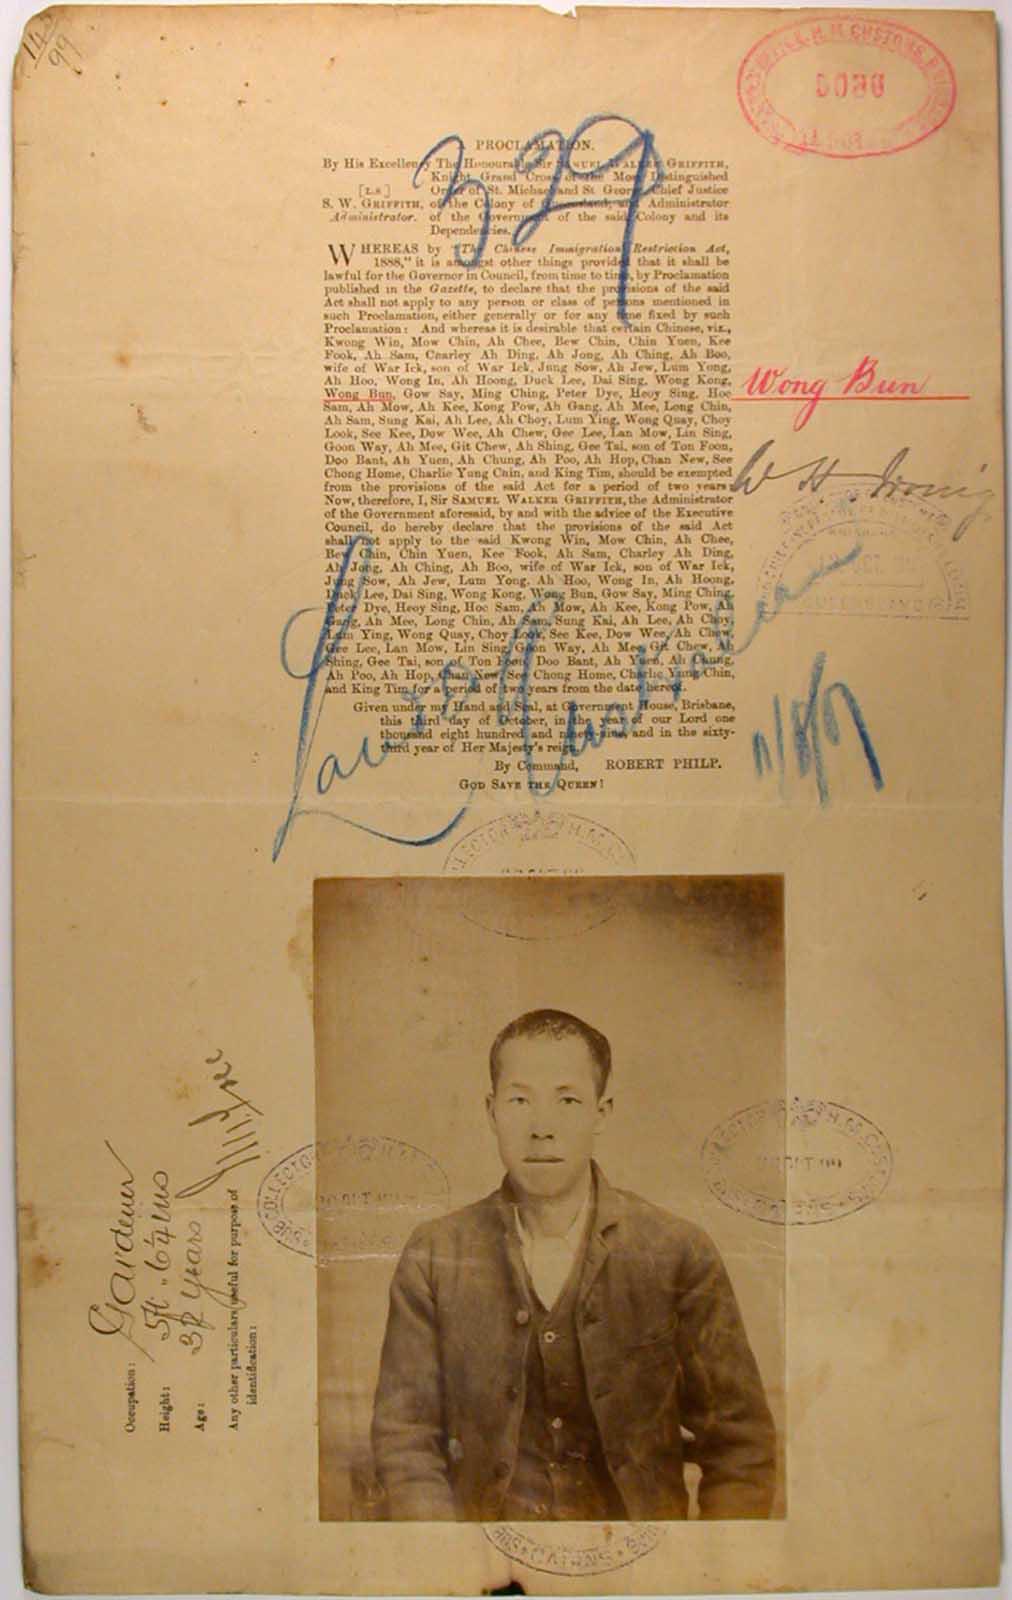 143
99
H. M. CUSTOMS
PROCLAMATION.
By His Excellency The Honourable Sir SAMUEL WALKER GRIFFITH,
Knight Grand Cross of the Most Distinguished
[L.S] Order of St. Michael and St George, Chief Justice
S. W. GRIFFITH, of the Colony of Queensland, and Administrator
Administrator. of the Government of the said Colony and its
Dependencies.
329
WHEREAS by "The Chinese Immigration Restriction Act,
1888," it is amongst other things provided that it shall be
lawful for the Governor in Council, from time to time, by Proclamation
published in the Gazette, to declare that the provisions of the said
Act shall not apply to any person or class of persons mentioned in
such Proclamation, either generally or for any time fixed by such
Proclamation: And whereas it is desirable that certain Chinese, viz.,
Kwong Win, Mow Chin, Ah Chee, Bew Chin, Chin Yuen, Kee
Fook, Ah Sam, Charley Ah Ding, Ah Jong, Ah Ching, Ah Boo,
wife of War Ick, son of War Ick, Jung Sow, Ah Jew, Lum Yong,
Ah Hoo, Wong In, Ah Hoong, Duck Lee, Dai Sing, Wong Kong,
Wong Bun, Gow Say, Ming Ching, Peter Dye, Heoy Sing, Hoc
Wong Bun
Sam, Ah Mow, Ah Kee, Kong Pow, Ah Gang, Ah Mee, Long Chin,
Ah Sam, Sung Kai, Ah Lee, Ah Choy, Lum Ying, Wong Quay, Choy
Look, See Kee, Dow Wee, Ah Chew, Gee Lee, Lan Mow, Lin Sing,
Goon Way, Ah Mee, Git Chew, Ah Shing, Gee Tai, son of Ton Foon,
Doo Bant, Ah Yuen, Ah Chung, Ah Poo, Ah Hop, Chan New, See
Chong Home, Charlie Yung Chin, and King Tim, should be exempted
from the provisions of the said Act for a period of two years:
W H
Now, therefore, I, Sir SAMUEL WALKER GRIFFITH, the Administrator
of the Government aforesaid, by and with the advice of the Executive
Council, do hereby declare that the provisions of the said Act
shall not apply to the said Kwong Win, Mow Chin, Ah Chee,
Bew Chin, Chin Yuen, Kee Fook, Ah Sam, Charley Ah Ding,
Ah Jong, Ah Ching, Ah Boo, wife of War Ick, son of War Ick,
Jung Sow, Ah Jew, Lum Yong, Ah Hoo, Wong In, Ah Hoong,
Duck Lee, Dai Sing, Wong Kong, Wong Bun, Gow Say, Ming Ching,
QUEENSLAND
Peter Dye, Heoy Sing, Hoc Sam, Ah Mow, Ah Kee, Kong Pow, Ah
Gang, Ah Mee, Long Chin, Ah Sam, Sung Kai, Ah Lee, Ah Choy,
Lum Ying, Wong Quay, Choy Look, See Kee, Dow Wee, Ah Chew,
Gee Lee, Lan Mow, Lin Sing, Goon Way, Ah Mee, Git Chew, Ah
Shing, Gee Tai, son of Ton Foon, Doo Bant, Ah Yuen, Ah Chung,
Ah Poo, Ah Hop, Chan New, See Chong Home, Charlie Yung Chin,
and King Tim for a period of two years from the date hereof.
Given under my Hand and Seal, at Government House, Brisbane,
this third day of October, in the year of our Lord one
thousand eight hundred and ninety-nine, and in the sixty-
third year of Her Majesty's reign.
By Command, ROBERT PHILP.
GOD SAVE THE QUEEN!
Landed
COLLECTOR H.M. CUS
COLLECTOR OF H.M. CUSTOMS
COLLECTOR OF H.M. CUSTOMS
CAIRNS
Occupation: Gardener
Height: 5ft. 6¼ ins
Age: 32 years
Any other particulars useful for purpose of
identification: